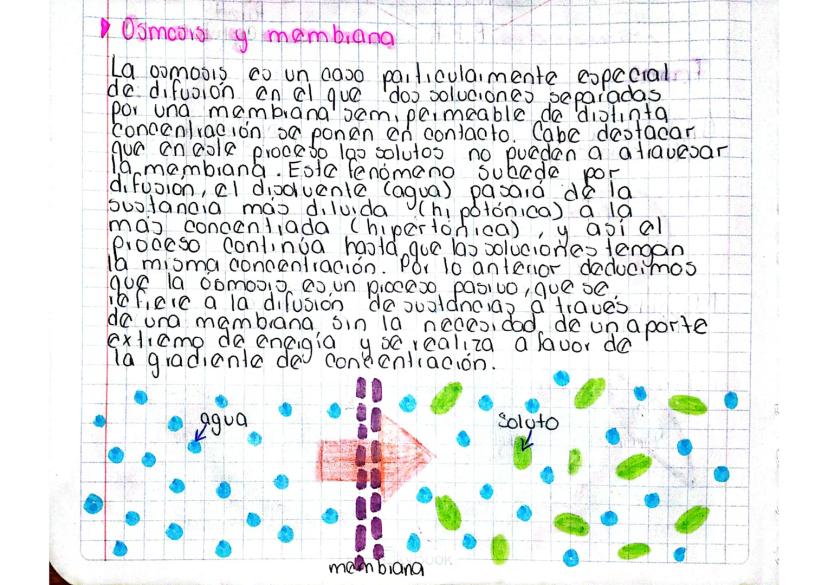 Osmosis y membrana
La osmosis es un caso particularmente especial
de difusión en el que dos soluciones separadas
por una membrana semipermeable de distinta
concentración se ponen en contacto. Cabe destacar
que en este proceso los solutos no pueden a atravesar
la membrana. Este fenómeno subede por
difusión, el disolvente (agua) pasará de la
sustancia más diluida (hipotónica) a la
más concentrada (hipertónica), y así el
proceso continúa hasta que las soluciones tengan
la misma concentración. Por lo anterior deducimos
que la ósmosis es un proceso pasivo, que se
refiere a la difusión de sustancias a través
de una membrana sin la necesidad de un aporte
extremo de energía y se realiza a favor de
la gradiente de concentración.
agua
soluto
membrana